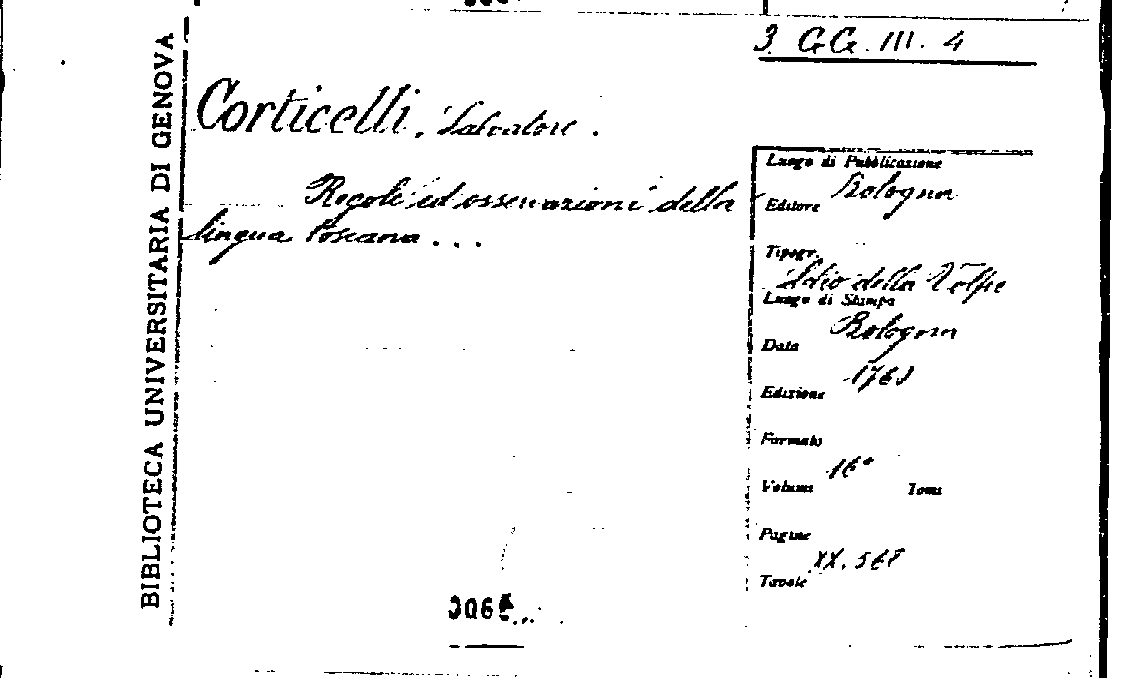 3 GG. III. 4
BIBLIOTECA UNIVERSITARIA DI GENOVA
Corticelli, Salvatore.
Regole ed osservazioni della
lingua toscana ...
Luogo di Pubblicazione
Bologna
Editore
Tipogr.
Lelio della Volpe
Luogo di Stampa
Bologna
Data
Edizione
Formato
16°
Volumi Tomi
Pagine
XX. 568
Tavole